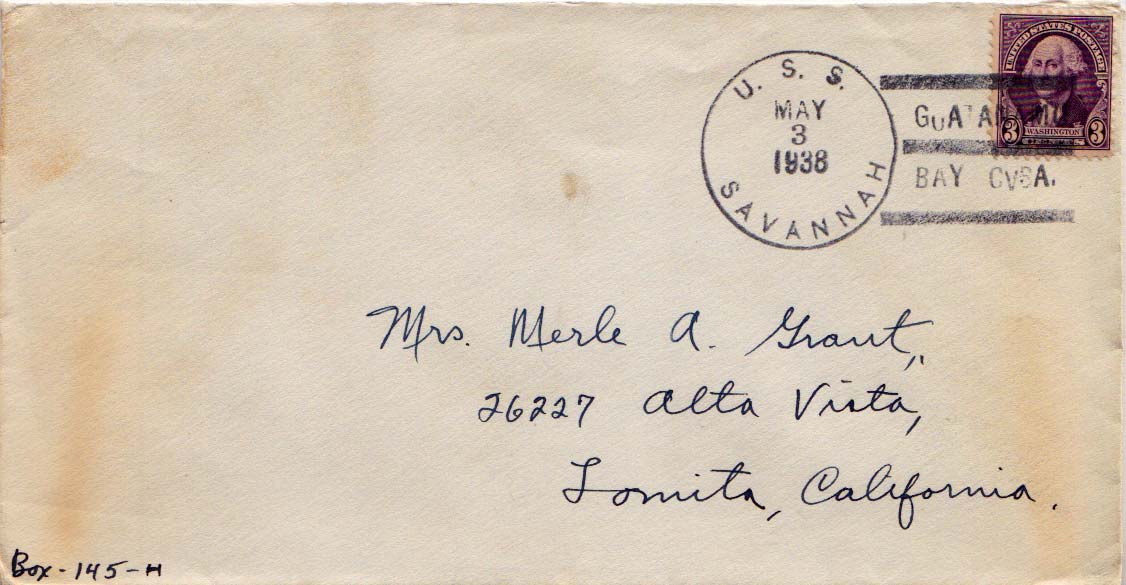 U. S. S.
MAY
3
1938
SAVANNAH
BAY CVBA.
UNITED STATES POSTAGE
3 WASHINGTON 3
Mrs. Merle A. Grant,
26227 Alta Vista,
Lomita, California.
Box-145-H